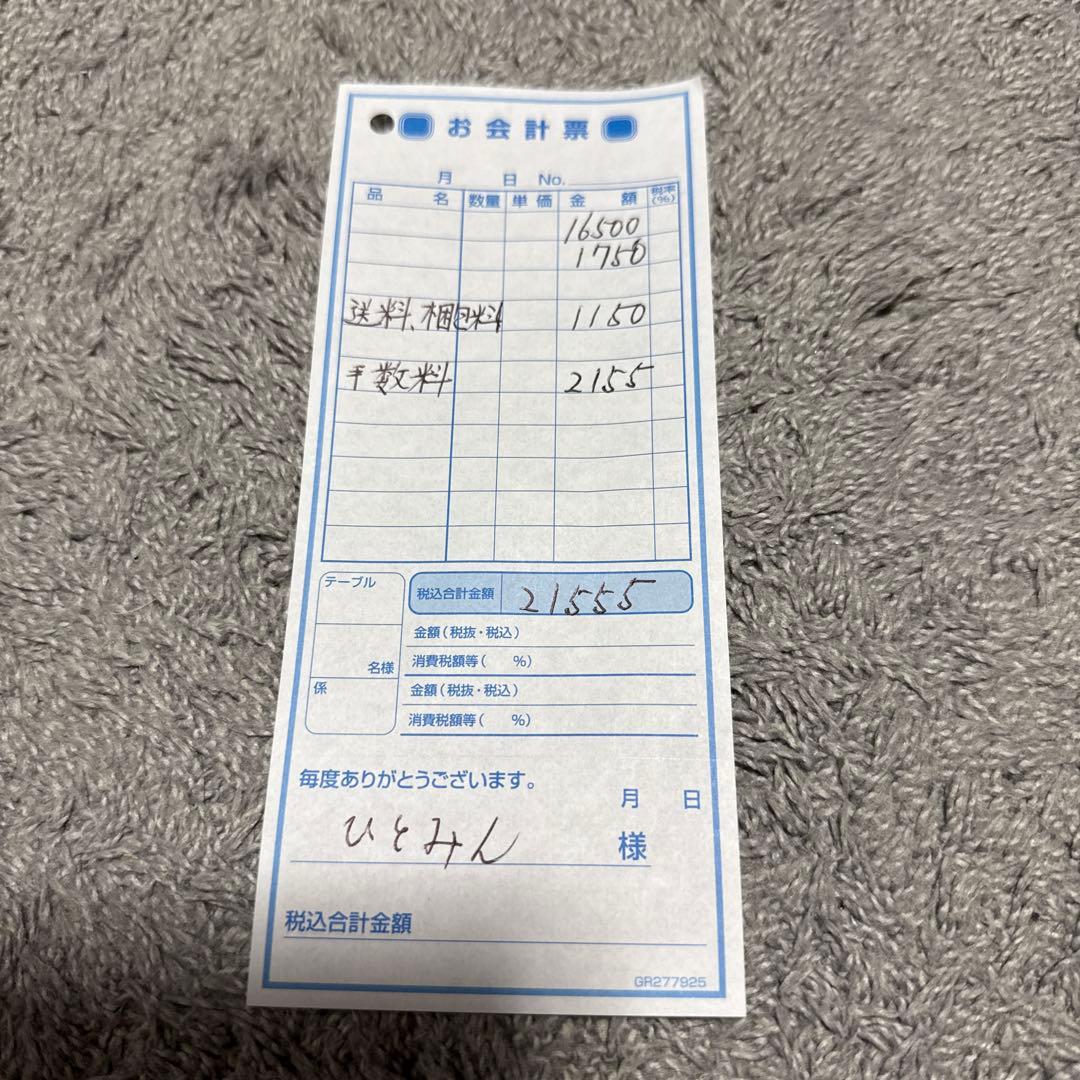 お会計票
月 日 No.
品名 数量 単価 金額 税率(%)
16500
1750
送料、梱包料 1150
手数料 2155
テーブル
税込合計金額 21555
金額(税抜・税込)
名様 消費税額等( %)
係 金額(税抜・税込)
消費税額等( %)
毎度ありがとうございます。
月 日
ひとみん 様
税込合計金額
GR277925